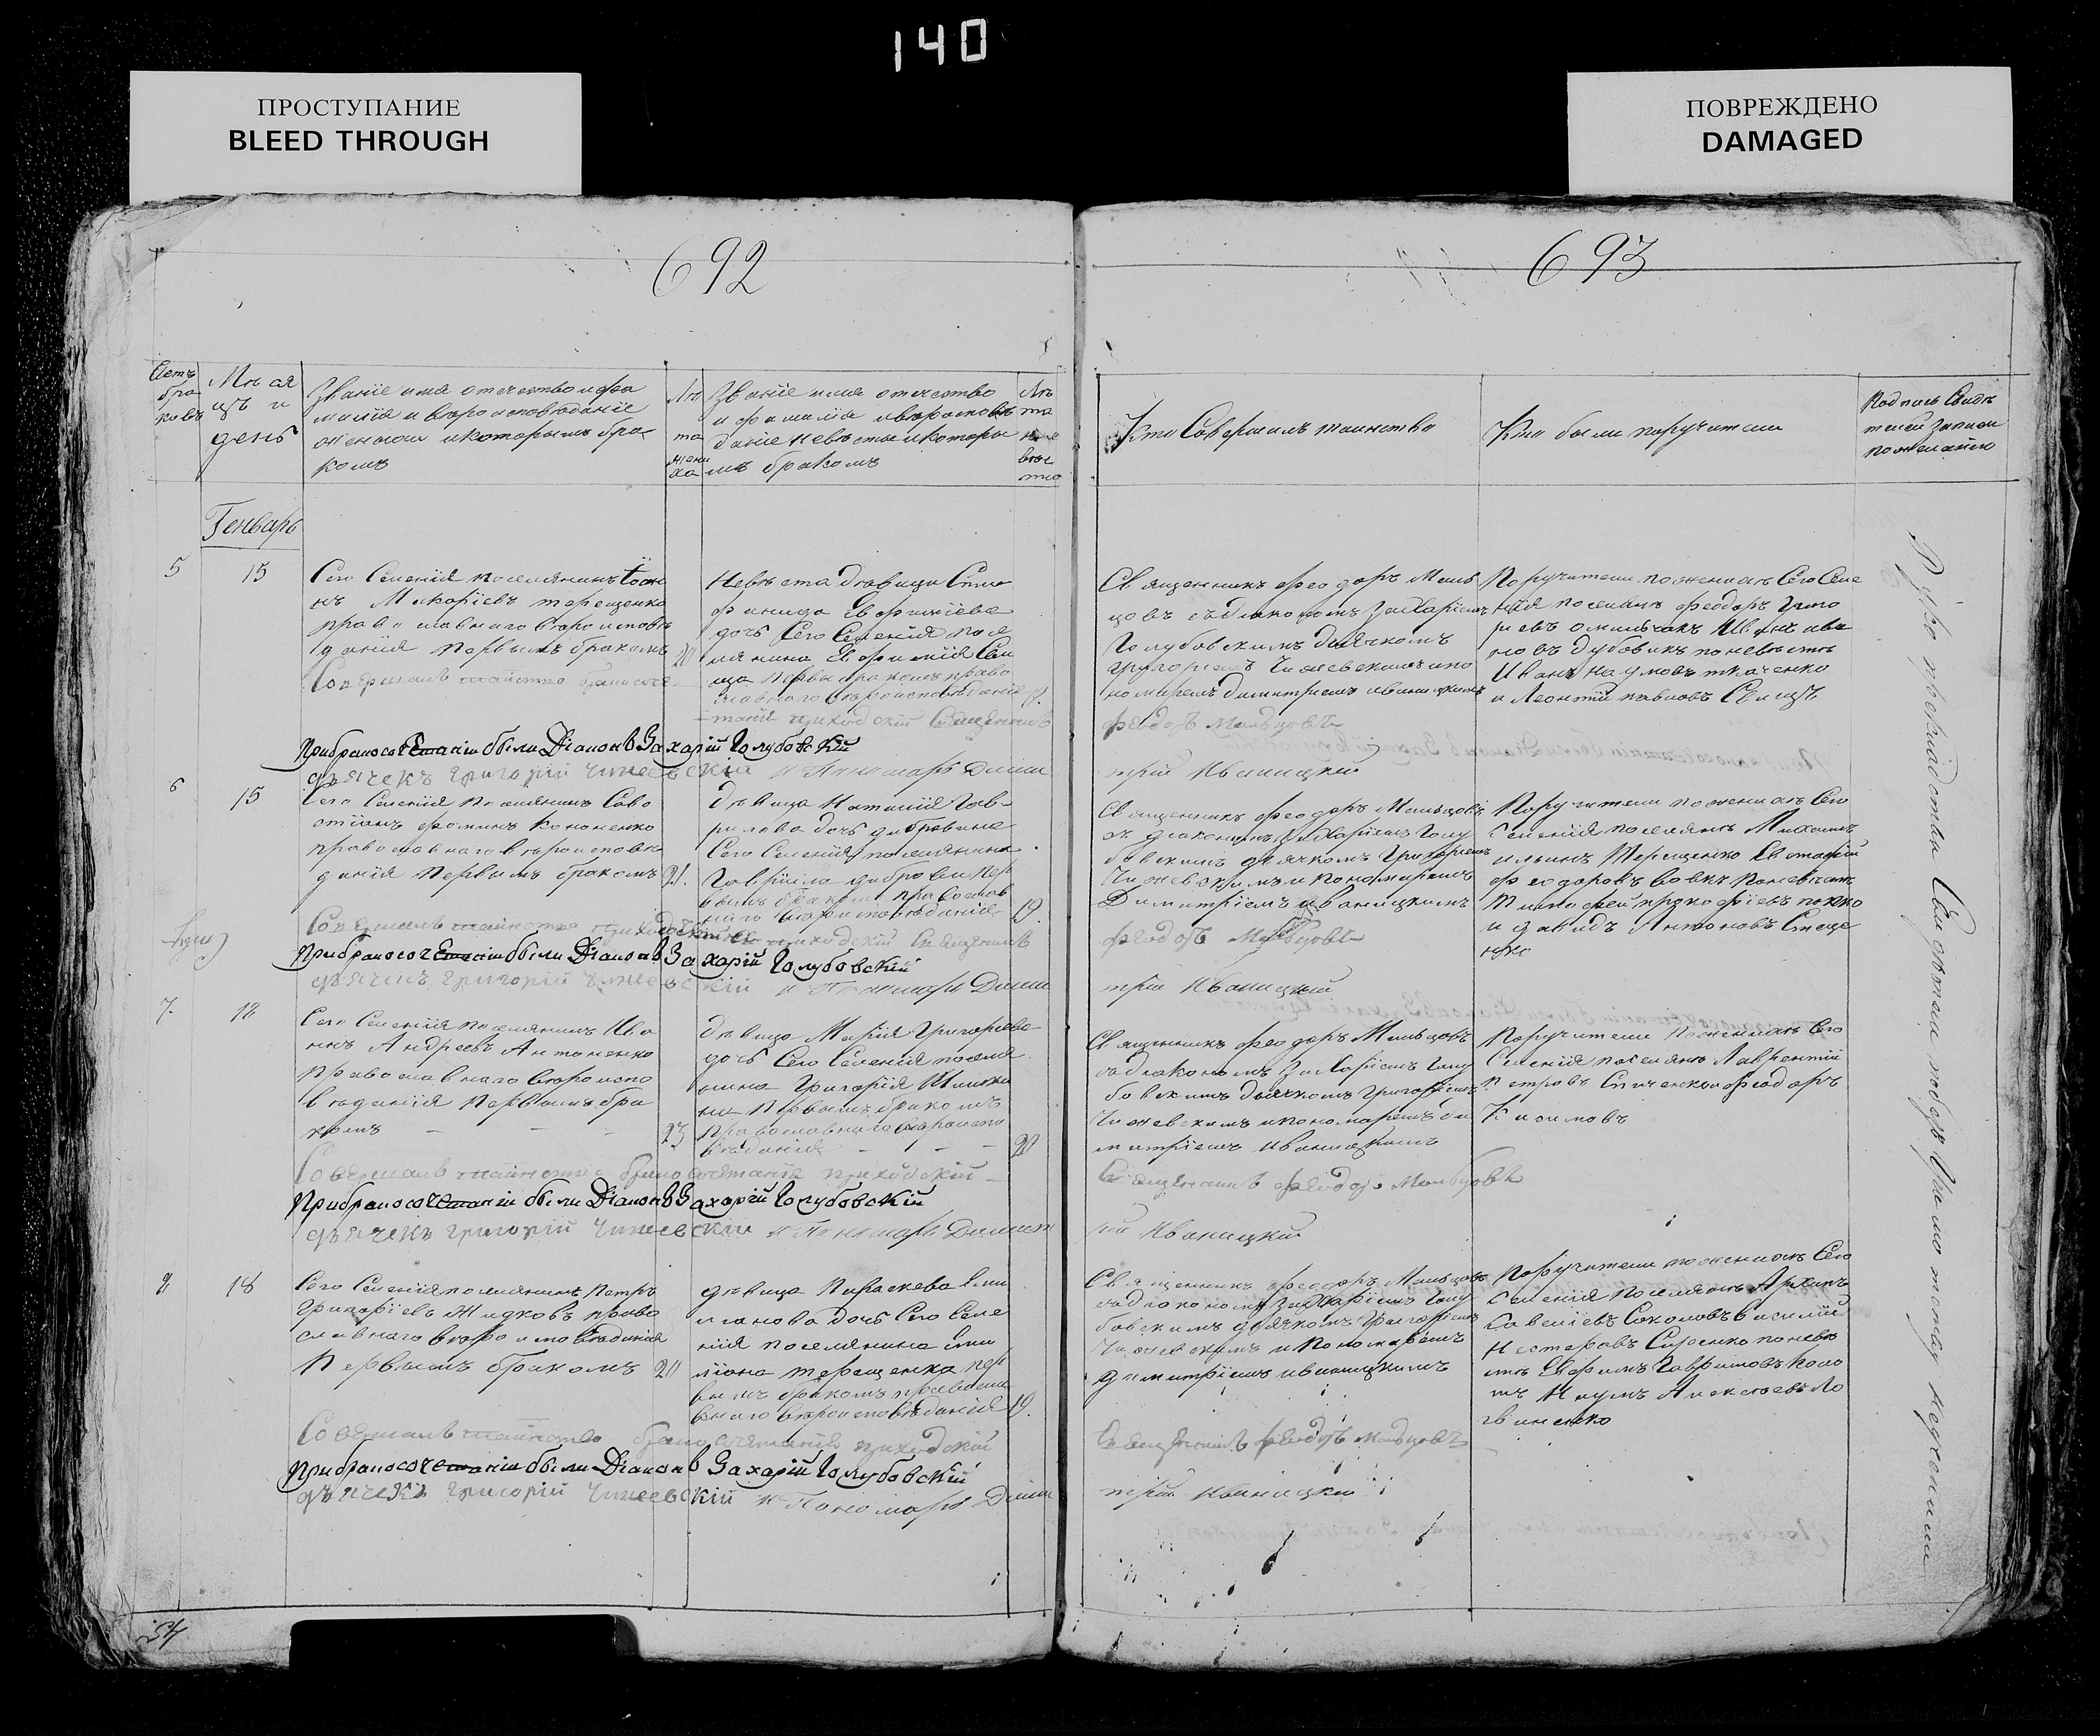 140
ПРОСТУПАНИЕ
BLEED THROUGH
ПОВРЕЖДЕНО
DAMAGED
692
693
Счетъ
бра
ковъ
Мѣся
цъ и
день
Званіе имя отечество и фа
милія и вѣроисповѣданіе
жениха и которымъ бра
комъ
Лѣ
та
жени
ха
Званіе имя отечество
и фамилія и вѣроисповѣ
даніе невѣсты и которы
мъ бракомъ
Лѣ
та
не
вѣс
ты
Кто Совершалъ таинство
Кто были поручители
Подпись Свидѣ
телей записи
по желанію
Генварь
5
15
Сего Селенія поселянинъ Іоан
нъ Макаріевъ терещенко
православнаго вѣроисповѣ
данія первымъ бракомъ
20
Невѣста дѣвица Сте
фанида Евфиміева
дочь Сего Селенія посе
лянина Евфимія Сви
ща первы бракомъ право
славнаго вѣроисповѣданія
Священникъ Феодоръ Маль
цовъ съ діакономъ Захаріемъ
Голубовскимъ дьячкомъ
григоріемъ Чижевскимъ и по
номаремъ димитріемъ иваницкимъ
Поручители по женихѣ Сего Селе
нія поселянъ Феодоръ Григо
ріевъ Иванъ ива
новъ дубовикъ по невѣстѣ
Иванъ наумовъ ткаченко
и Леонтій павловъ Свищъ
Совершалъ таинство бракосоче
таніе приходскій Священникъ
Феодоръ Мальцовъ
При бракосочетаніи были Діаконъ Захарій Голубовскій
дьячекъ григорій Чижевскій и Пономарь Дими
трій Иваницкій
6
15
Сего Селенія поселянинъ Сава
стіанъ Фоминъ Кононенко
православнаго вѣроисповѣ
данія первымъ бракомъ
21.
дѣвица Наталія Гав
рилова дочь дибровина
Сего Селенія поселянина
Гавріила дибровы пер
вымъ бракомъ православ
наго вѣроисповѣданія
19.
Священникъ Феодоръ Мальцовъ
съ діакономъ Захаріемъ Голу
бовскимъ дьячкомъ Григоріемъ
Чижевскимъ и пономаремъ
Димитріемъ иваницкимъ
Поручители по женихѣ Сего
Селенія поселянъ Михаилъ
ильинъ Терещенко Евстафій
Феодоровъ вовкъ по невѣстѣ
Тимофей прокофіевъ
и давидъ Антоновъ Стаце
нко
Совершалъ таинство
приходскій Священникъ
Феодоръ Мальцовъ
При бракосочетаніи были Діаконъ Захарій Голубовскій
дьячекъ григорій Чижевскій и Пономарь Дими
трій Иваницкій
7.
18
Сего Селенія поселянинъ Ива
нъ Андреевъ Антоненко
православнаго вѣроиспо
вѣданія первымъ бра
комъ
23
дѣвица Марія Григоріева
дочь Сего Селенія поселя
нина Григорія
на первымъ бракомъ
православнаго вѣроиспо
вѣданія
20
Священникъ Феодоръ Мальцовъ
съ діакономъ Захаріемъ Голу
бовскимъ дьячкомъ григоріемъ
Чижевскимъ и пономаремъ ди
митріемъ иваницкимъ
Поручители по женихѣ Сего
Селенія поселянъ Лаврентій
петровъ и Феодоръ
Совершалъ таинство бракосочетанія приходскій
Священникъ Феодоръ Мальцовъ
При бракосочетаніи были Діаконъ Захарій Голубовскій
дьячекъ григорій Чижевскій и Пономарь Димит
рій Иваницкій
8
18
Сего Селенія поселянинъ Петръ
Григоріевъ Жидковъ право
славнаго вѣроисповѣданія
первымъ бракомъ
20
дѣвица Параскева Еми
ліанова дочь Сего Селе
нія поселянина Еми
ліана терещенка пер
вымъ бракомъ правосла
внаго вѣроисповѣданія
19.
Священникъ Феодоръ Мальцовъ
съ діакономъ Захаріемъ Голу
бовскимъ дьячкомъ Григоріемъ
Чижевскимъ и Пономаремъ
димитріемъ иваницкимъ
Поручители по женихѣ Сего
Селенія поселянъ Архипъ
Савеліевъ Соколовъ василій
Нестеровъ по невѣ
стѣ Ефимъ Гавриловъ
Наумъ Алексѣевъ Ло
гвиненко
Совершалъ таинство бракосочетанія приходскій
Священникъ Феодоръ Мальцовъ
При бракосочетаніи были Діаконъ Захарій Голубовскій
дьячекъ григорій Чижевскій и Пономарь Дими
трій Иваницкій